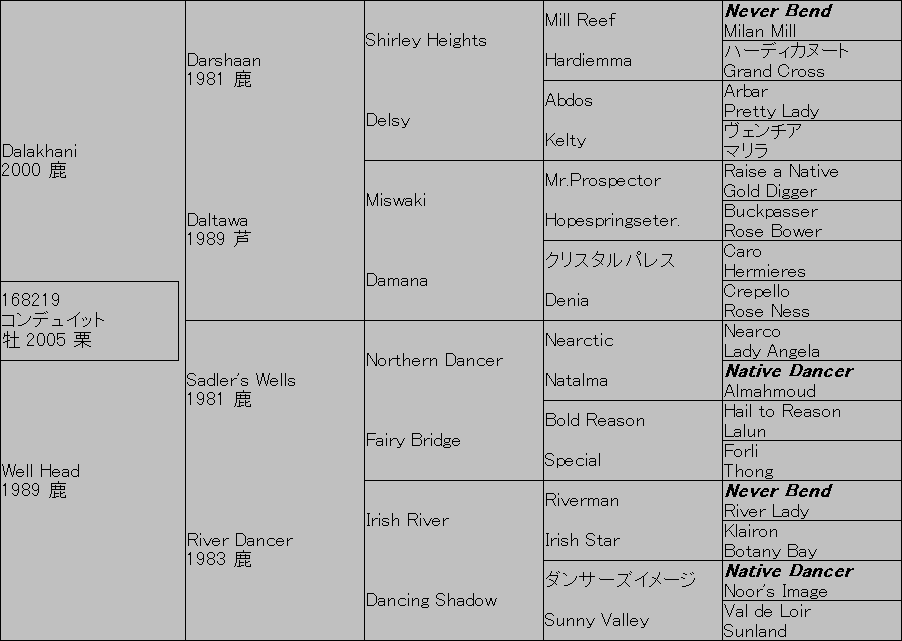 Dalakhani
2000 鹿
168219
コンデュイット
牡 2005 栗
Well Head
1989 鹿
Darshaan
1981 鹿
Daltawa
1989 芦
Sadler's Wells
1981 鹿
River Dancer
1983 鹿
Shirley Heights
Delsy
Miswaki
Damana
Northern Dancer
Fairy Bridge
Irish River
Dancing Shadow
Mill Reef
Hardiemma
Abdos
Kelty
Mr.Prospector
Hopespringseter.
クリスタルパレス
Denia
Nearctic
Natalma
Bold Reason
Special
Riverman
Irish Star
ダンサーズイメージ
Sunny Valley
Never Bend
Milan Mill
ハーディカヌート
Grand Cross
Arbar
Pretty Lady
ヴェンチア
マリラ
Raise a Native
Gold Digger
Buckpasser
Rose Bower
Caro
Hermieres
Crepello
Rose Ness
Nearco
Lady Angela
Native Dancer
Almahmoud
Hail to Reason
Lalun
Forli
Thong
Never Bend
River Lady
Klairon
Botany Bay
Native Dancer
Noor's Image
Val de Loir
Sunland